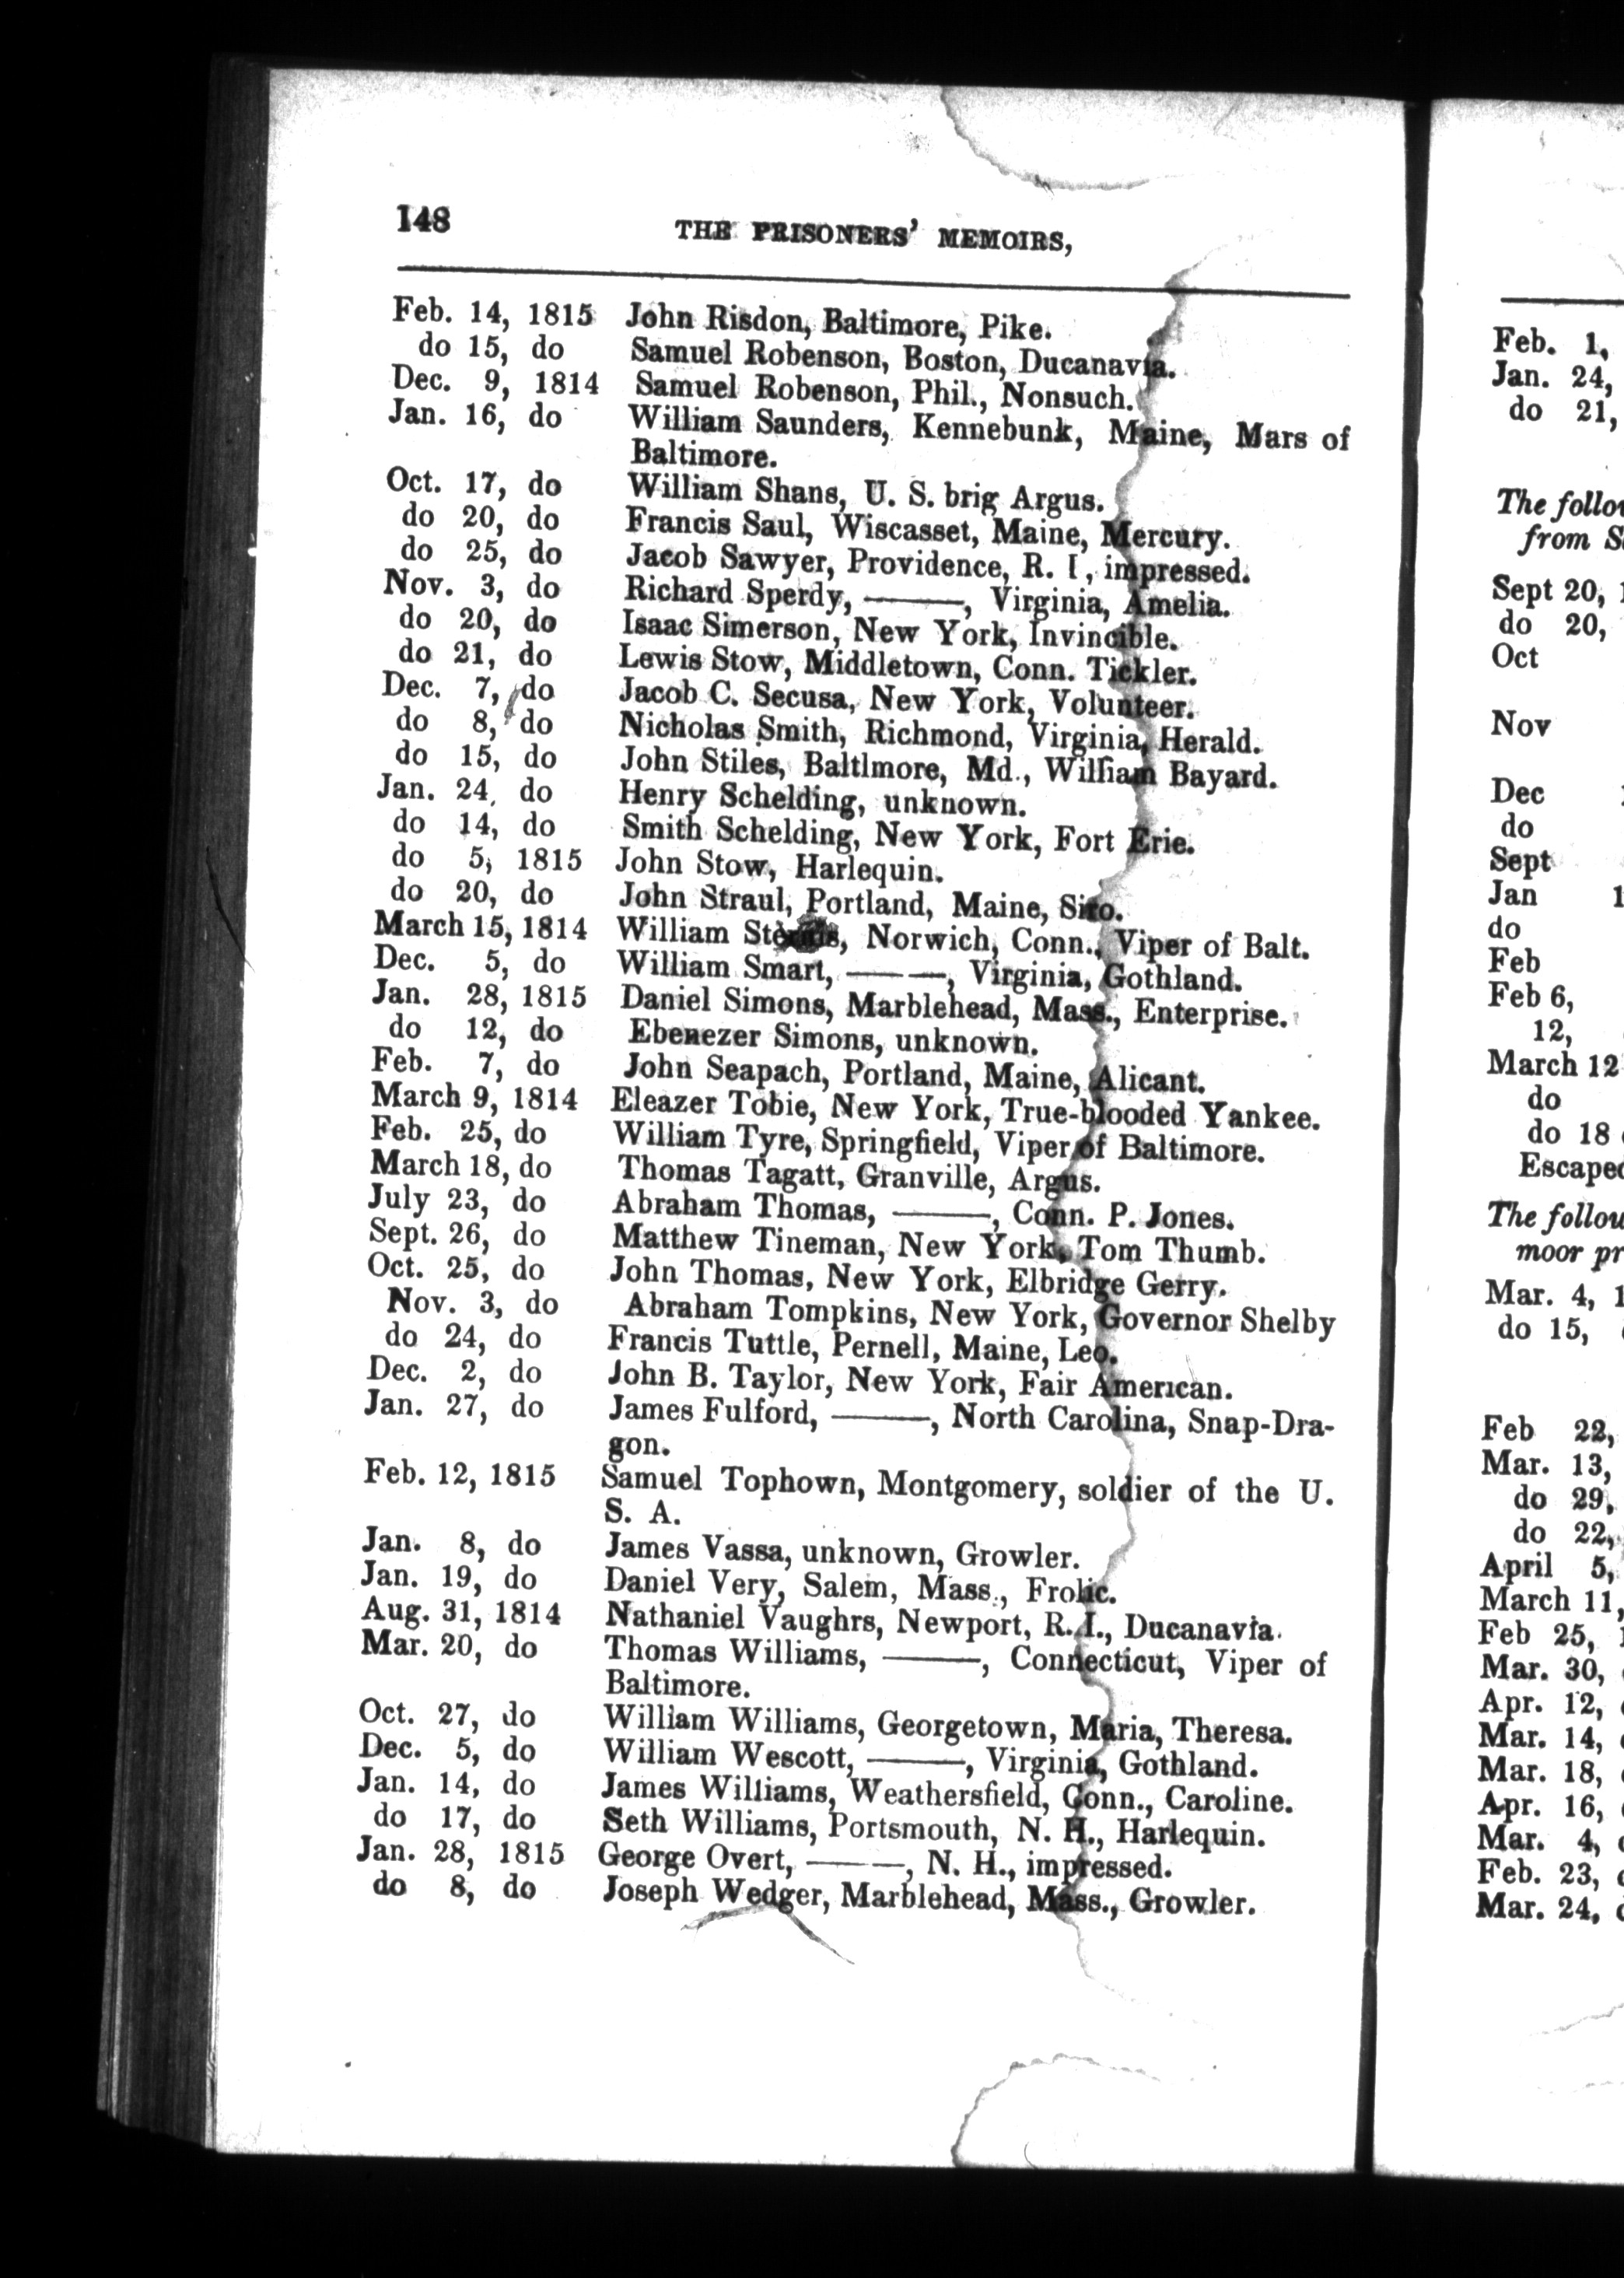 148 THE PRISONERS' MEMOIRS,
Feb. 14, 1815 John Risdon, Baltimore, Pike.
do 15, do Samuel Robenson, Boston, Ducanavia.
Dec. 9, 1814 Samuel Robenson, Phil., Nonsuch.
Jan. 16, do William Saunders, Kennebunk, Maine, Mars of
Baltimore.
Oct. 17, do William Shans, U. S. brig Argus.
do 20, do Francis Saul, Wiscasset, Maine, Mercury.
do 25, do Jacob Sawyer, Providence, R. I, impressed.
Nov. 3, do Richard Sperdy, ———, Virginia, Amelia.
do 20, do Isaac Simerson, New York, Invincible.
do 21, do Lewis Stow, Middletown, Conn. Tickler.
Dec. 7, do Jacob C. Secusa, New York, Volunteer.
do 8, do Nicholas Smith, Richmond, Virginia, Herald.
do 15, do John Stiles, Baltlmore, Md., William Bayard.
Jan. 24, do Henry Schelding, unknown.
do 14, do Smith Schelding, New York, Fort Erie.
do 5, 1815 John Stow, Harlequin.
do 20, do John Straul, Portland, Maine, Siro.
March 15, 1814 William , Norwich, Conn., Viper of Balt.
Dec. 5, do William Smart, ———, Virginia, Gothland.
Jan. 28, 1815 Daniel Simons, Marblehead, Mass., Enterprise.
do 12, do Ebenezer Simons, unknown.
Feb. 7, do John Seapach, Portland, Maine, Alicant.
March 9, 1814 Eleazer Tobie, New York, True-blooded Yankee.
Feb. 25, do William Tyre, Springfield, Viper of Baltimore.
March 18, do Thomas Tagatt, Granville, Argus.
July 23, do Abraham Thomas, ———, Conn. P. Jones.
Sept. 26, do Matthew Tineman, New York, Tom Thumb.
Oct. 25, do John Thomas, New York, Elbridge Gerry.
Nov. 3, do Abraham Tompkins, New York, Governor Shelby
do 24, do Francis Tuttle, Pernell, Maine, Leo.
Dec. 2, do John B. Taylor, New York, Fair American.
Jan. 27, do James Fulford, ———, North Carolina, Snap-Dra-
gon.
Feb. 12, 1815 Samuel Tophown, Montgomery, soldier of the U.
S. A.
Jan. 8, do James Vassa, unknown, Growler.
Jan. 19, do Daniel Very, Salem, Mass., Frolic.
Aug. 31, 1814 Nathaniel Vaughrs, Newport, R. I., Ducanavia.
Mar. 20, do Thomas Williams, ———, Connecticut, Viper of
Baltimore.
Oct. 27, do William Williams, Georgetown, Maria, Theresa.
Dec. 5, do William Wescott, ———, Virginia, Gothland.
Jan. 14, do James Williams, Weathersfield, Conn., Caroline.
do 17, do Seth Williams, Portsmouth, N. H., Harlequin.
Jan. 28, 1815 George Overt, ———, N. H., impressed.
do 8, do Joseph Wedger, Marblehead, Mass., Growler.
Feb. 1,
Jan. 24,
do 21,
The
from
Sept 20,
do 20,
Oct
Nov
Dec
do
Sept
Jan 1
do
Feb
Feb 6,
12,
March 12
do
do 18
Escaped
The
moor
Mar. 4, 1
do 15,
Feb 22,
Mar. 13,
do 29,
do 22,
April 5,
March 11,
Feb 25,
Mar. 30,
Apr. 12,
Mar. 14,
Mar. 18,
Apr. 16,
Mar. 4,
Feb. 23,
Mar. 24,